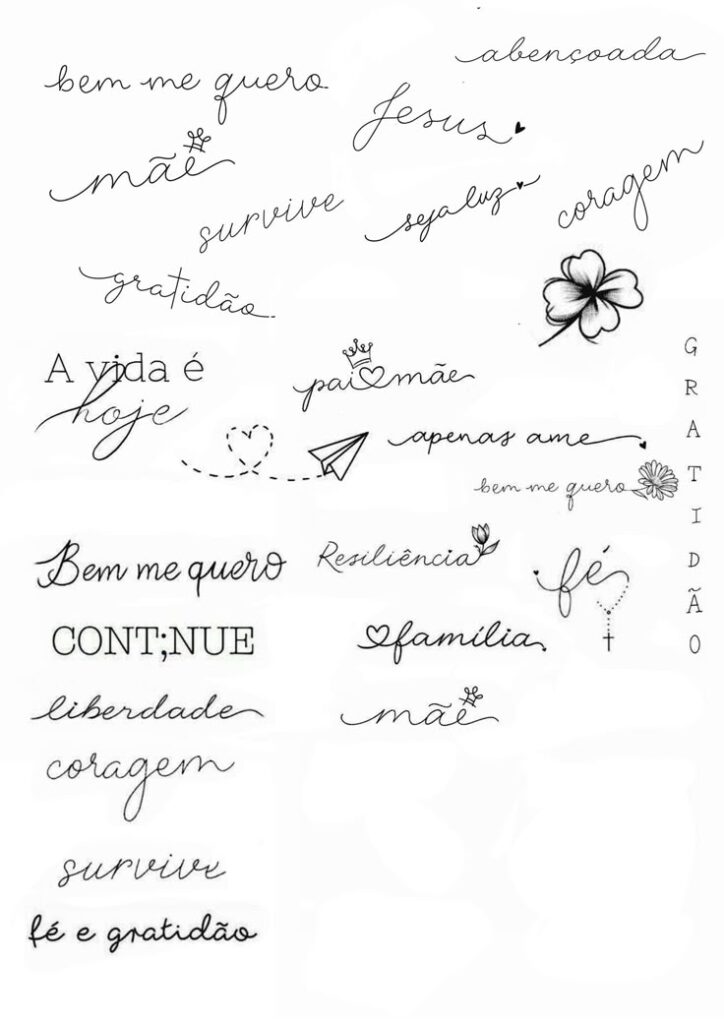 bem me quero
abençoada
Jesus
mãe
survive
seja luz
coragem
gratidão
A vida é
hoje
pai mãe
apenas ame
bem me quero
GRATIDÃO
Bem me quero
Resiliência
fé
CONT;NUE
família
liberdade
mãe
coragem
survive
fé e gratidão